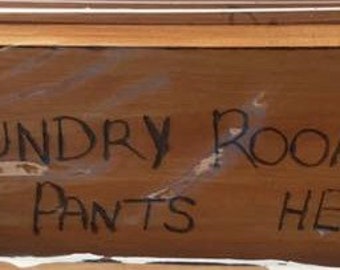 UNDRY ROOM
PANTS HE